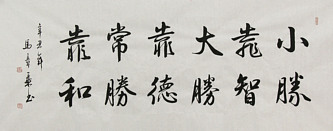 小勝
靠智
大勝
靠德
常勝
靠和
辛丑年